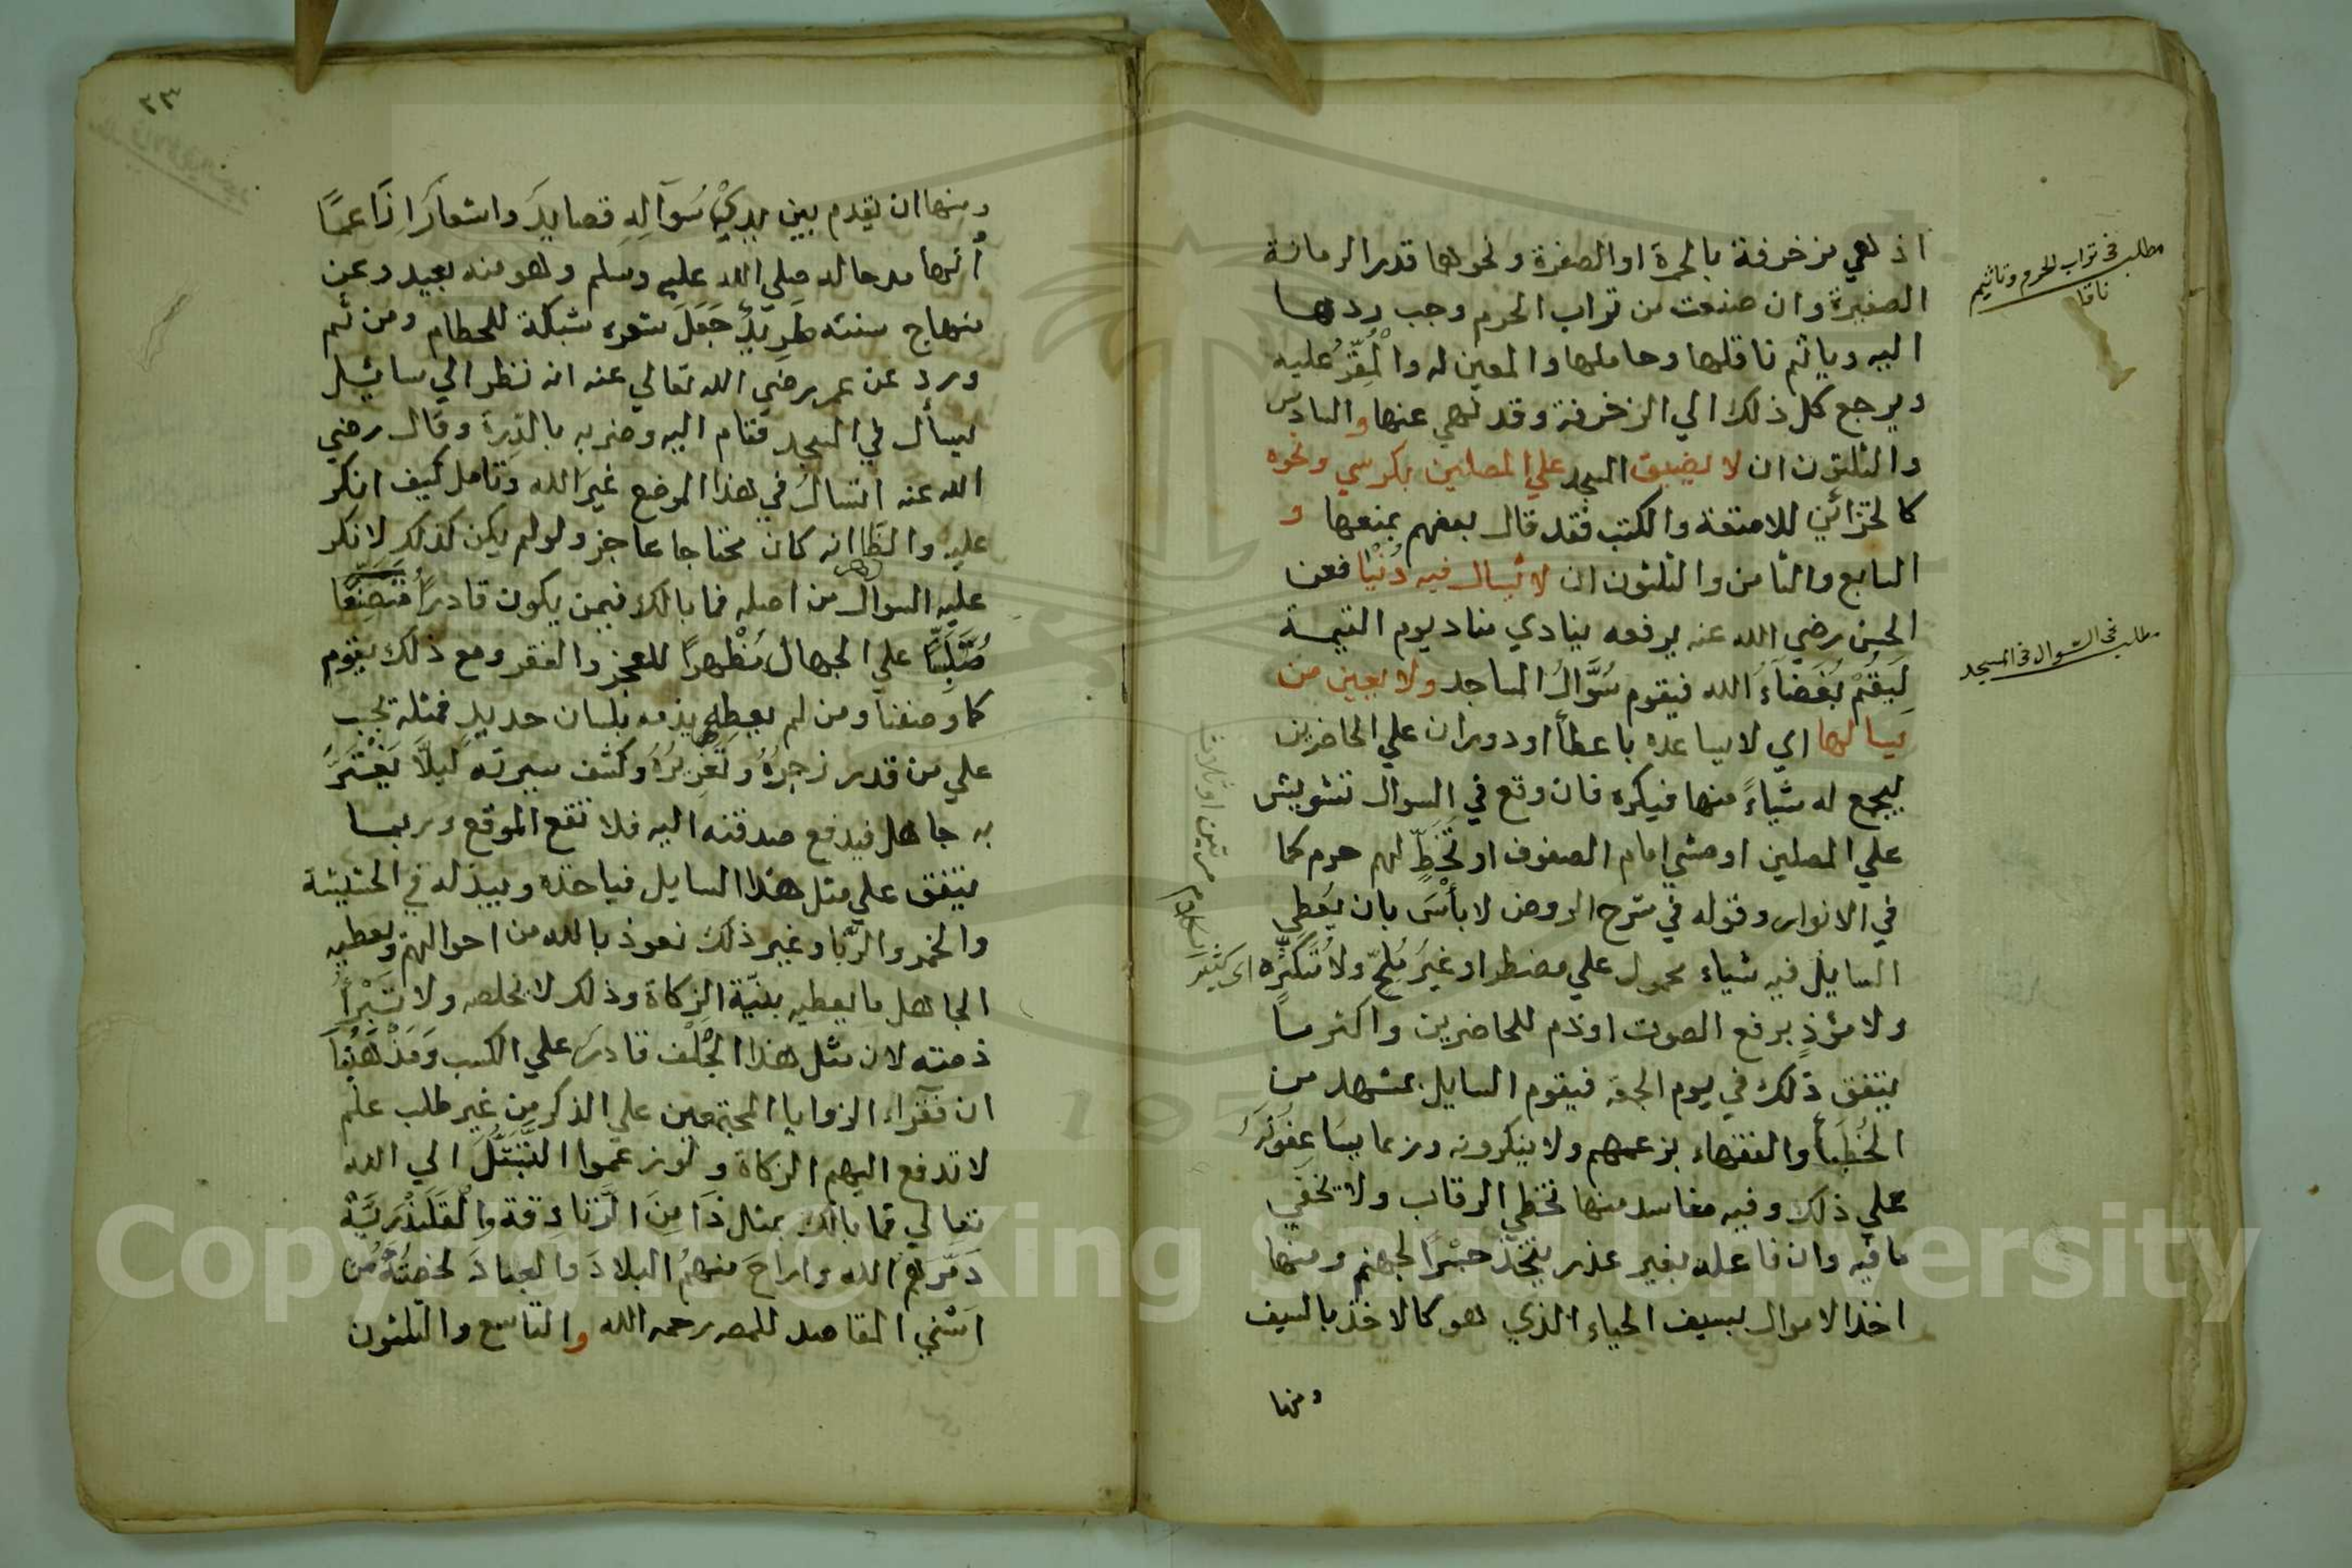 اذ هي مزخرفة بالحمرة او الصفرة ونحوها قدر الرمانة
الصغيرة وان صنعت من تراب الحرم وجب ردها
اليه وياثم ناقلها وحاملها والمعين له والْمُقِرُّ عليه
ويرجع كل ذلك الي الزخرفة وقد نهي عنها والسادس
والثلثون ان لا يضيق المسجد علي المصلين بكرسي ونحوه
كالخزائن للامتعة والكتب فقد قال بعضهم بمنعها و
السابع والثامن والثلثون ان لا يُسال فيه دُنْيَا فعن
الحسن رضي الله عنه يرفعه ينادي مناد يوم القيمة
لِيَقُمْ بُغَضَاءُ الله فيقوم سُوَّالُ المساجد ولا يعين من
يسالها اي لا يساعده باعطأ او دوران علي الحاضرين
ليجمع له شياءً منها فيكره فان وقع في السوال تشويش
علي المصلين او مشي امام الصفوف او تَخَطٍّ لهم حرم كما
في الانوار وقوله في شرح الروض لا بأسَ بان يُعطي
السايل فيه شياء محمول علي مضطر او غيرَ مُلِحّ ولا مُتَكَرِّه
ولا مؤذٍ برفع الصوت او ذم للحاضرين واكثر ما
يتفق ذلك في يوم الجمعة فيقوم السايل بمشهد من
الخُطَبَأ والفقهاء بزعمهم ولا ينكرونه وربما يساعفونَهُ
علي ذلك وفيه مفاسد منها تخطي الرقاب ولا يخفي
ما فيه وان فاعله بغير عذر يتخذ جسْرًا لجهنم ومنها
اخذ الاموال بسيف الحياء الذي هو كالاخذ بالسيف
ومنها
مطلب في تراب الحرم وتاثيم
ناقل
مطلب في السوال في المسجد
اي كثير
مرتين او ثلاث
٢٣
ومنها ان يقدم بين يديْ سُوَآلِهِ قصايدَ واشعارَا زَاعمًا
أنها مدحا له صلي الله عليه وسلم وهو منه بعيد وعن
منهاج سنته طَرِيْدٌ جَعَلَ شعره شبكة للحطام ومن ثَم
ورد عن عمر رضي الله تعالي عنه انه نظر الي سائل
يسأل في المسجد فقام اليه وضربه بالدِّرة وقال رضي
الله عنه اتسالُ في هذا الموضع غيرَ الله وتامل كيف انكر
عليه والظاهر انه كان محتاجا عاجز ولو لم يكن كذلك لانكر
عليه السوال من اصله فما بالك فيمن يكون قادرًا مُتَصَنِّعًا
مُتَلَبِّسًا علي الجهال مُظْهِرًا للعجز والفقر ومع ذلك يقوم
كما وصفنا ومن لم يعطه يذمه بلسان حديدٍ فمثله يجب
علي من قدر زجرُهُ وتَعْزِيْرُهُ وكشف سيرته لِيلَّا يَغْتَرَّ
به جاهل فيدفع صدقته اليه فلا تقع الموقع وربما
يتفق علي مثل هذا السايل فياخذه ويبذله في الحشيشة
والخمر والزنا وغير ذلك نعوذ بالله من احوالهم ويعطيه
الجاهل ما يعطيه بنيّة الزكاة وذلك لا يخلصه ولا تَبْرأ
ذمته لان مثل هذا الجِلْف قادرٌ علي الكسب ومَذْهَبُنَا
ان فقرآء الزوايا المجتمعين علي الذكر من غير طلب علم
لا تدفع اليهم الزكاة ولو زعموا التَّبَتُّلَ الي الله
تعالي فما بالك بمثل ذَا مِنَ الزَّنَادِقَةِ والْقَلَنْدَرِيَّةِ
دَمَّرَهُم الله واراحَ منهمُ البلادَ والعبادَ لخصتُهُ من
اسْني المقاصد للمص رحمه الله والتاسع والثلثون